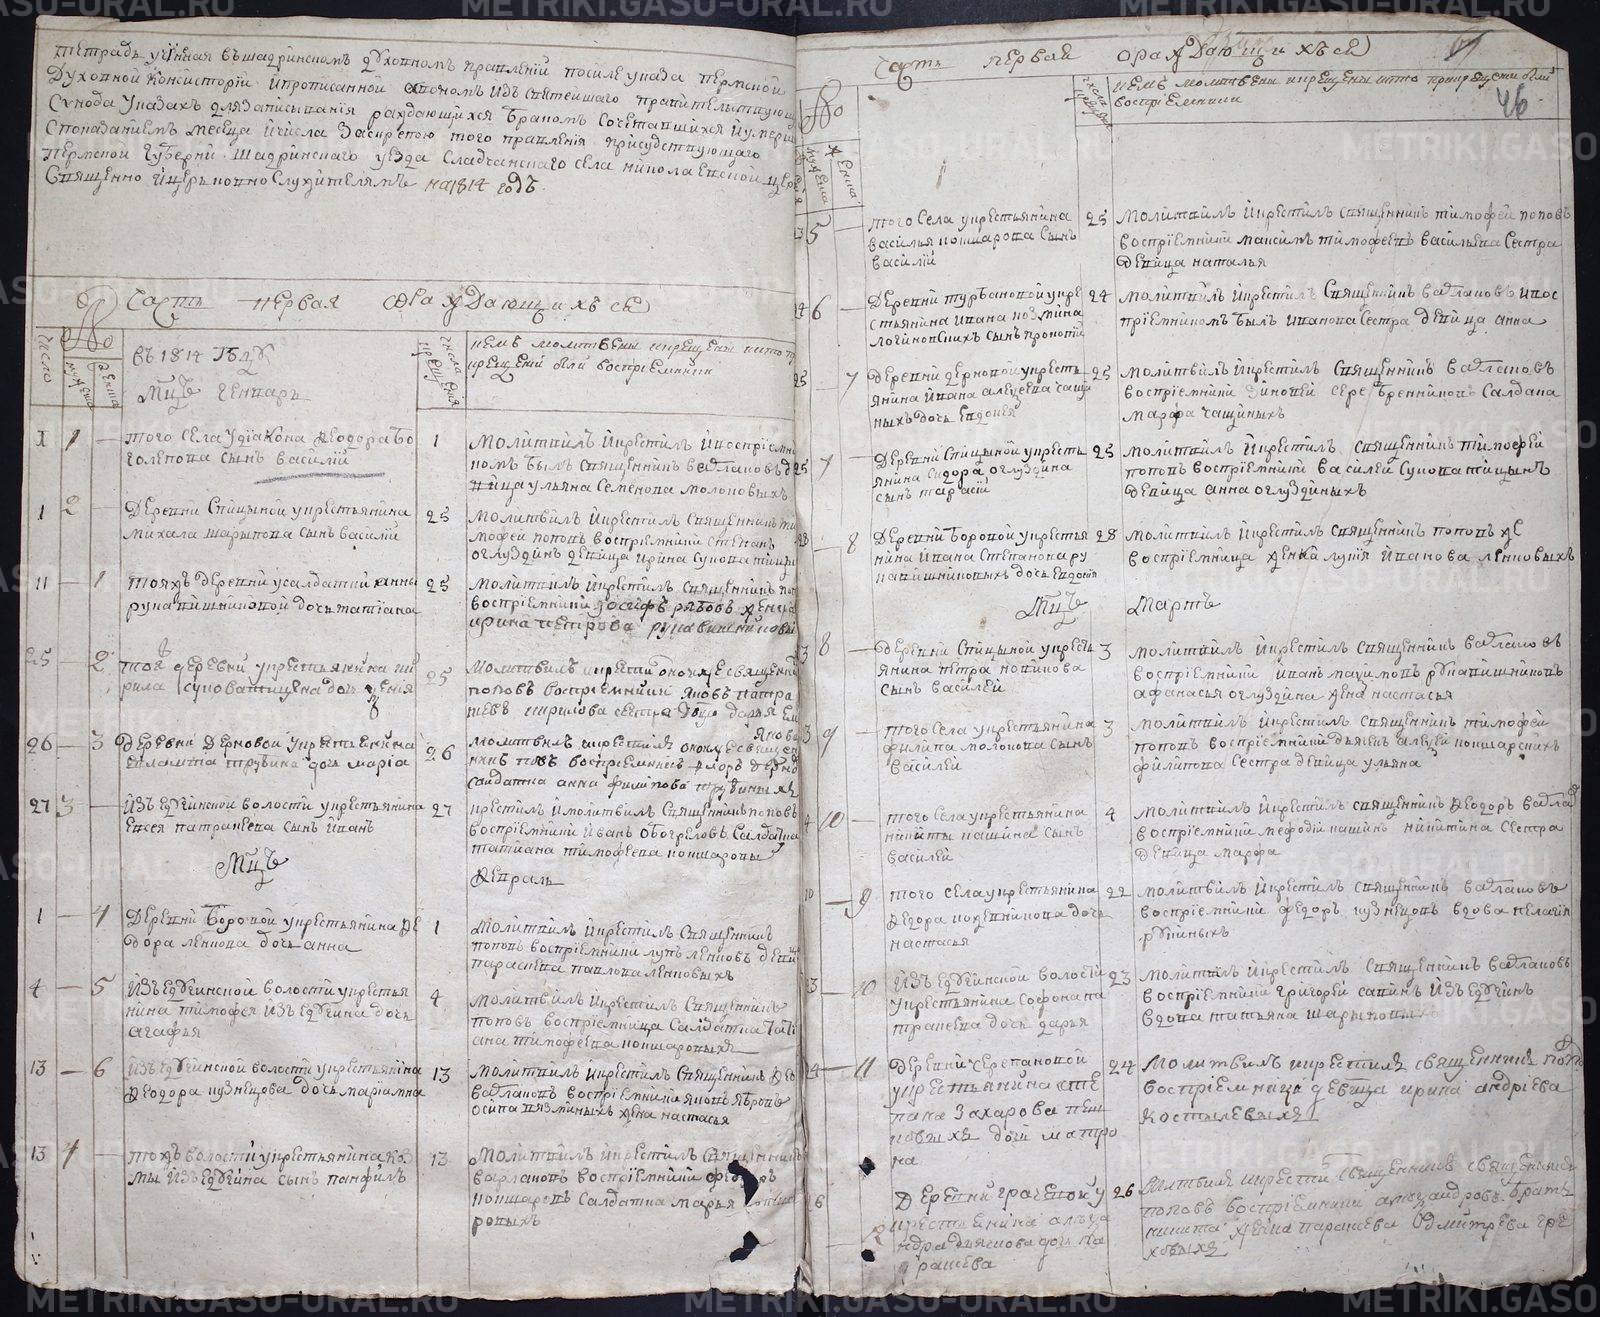 тетрадь учиненая въ шадринскомъ духовномъ правлении посиле указа пермской
духовной консистории и прописанной въ ономъ изъ святейшаго правительствующ
Синода указахъ для записывания раждающихся браком сочетавшихся и умерш
спокaзаниемъ месеца и числа заскрепою того правления присудствующаго
пермской губерни шадринскаго уезда Сладчанскаго села николаевской цер
священно и церковнослужителямъ на 1814 годъ
№ Часть первая о раждающихъся
число
№
мужеска женска
въ 1814 году
Мцъ генваръ
числа крещения
кемъ молитвены и крещены и кто п
крещении был восприемники
1 1 — того села у диакона феодора бо
голепова сынъ василий
1 молитвилъ и крестилъ и восприемни
комъ былъ священникъ варлаповъ д
вица ульяна Семенова молоковыхъ
1 2 — деревни Спицыной у крестьянина
михала шарыпова сынъ василий
25 молитвилъ и крестилъ священникъ ти
мофей поповъ восприемники степанъ
оглуздинъ девица ирина Суповатицы
11 — 1 тояжъ деревни у салдатки анны
рукавишниковой дочь татиана
25 молитвилъ и крестилъ священникъ поп
восприемники иосифъ рябовъ женка
ирина петрова рукавишниковы
25 — 2 той деревни у крестьянина ки
рила суповатицена дочь
25 молитвилъ и крести оной же священни
поповъ восприемники яковъ патра
кеевъ кирилова сестра дарья
26 — 3 деревни дерновой у крестьянина
евлампа трубина дочь мариа
26 молитвилъ и крестилъ оной же священ
никъ поповъ восприемники
салдатка анна филипова трубиныхъ
27 3 — изъедугинской волости у крестьянина
евсея патракеева сынъ иванъ
27 крестилъ и молитвилъ священникъ поповъ
восприемники иванъ обогреловъ салдатка
татиана тимофеева кошаровы
Мцъ
февраль
1 — 4 деревни боровой у крестьянина фе
дора ленкова дочь анна
1 молитвилъ и крестилъ священникъ
поповъ восприемники лупъ ленковъ деви
параскева павлова ленковыхъ
4 — 5 изъедугинской волости у крестья
нина тимофея изъедугина дочь
агафья
4 молитвилъ и крестилъ священникъ
поповъ восприемница салдатка тати
ана тимофеева кошаровыхъ
13 — 6 изъедугинской волости у крестьянина
феодора кузнецова дочь мариамна
13 молитвилъ и крестилъ священникъ фео
варлаповъ восприемники яковъ
осипа вязминыхъ жена настасья
13 4 — тояжъ волости у крестьянина ко
мы изъедугина сынъ панфилъ
13 молитвилъ и крестилъ священникъ
варлаповъ восприемники федоръ
кошаровъ салдатка марья коша
ровыхъ
Часть первая о раждающихъся
46
№
мужеска женска
числа крещения
кемъ молитвены и крещены и кто при крещени были
восприемники
5 — того села у крестьянина
василья кошарова сынъ
василий
25 молитвилъ и крестилъ священникъ тимофей поповъ
восприемники максимъ тимофеевъ васильева сестра
девица наталья
24 6 — деревни турбановой у кре
стьянина ивана козмина
логиновскихъ сынъ прокопий
24 молитвилъ и крестилъ священникъ варлаповъ и вос
приемникомъ былъ иванова сестра девица анна
25 — 7 деревни дерновой у кресть
янина ивана алексеева чащи
ныхъ дочь евдокея
25 молитвилъ и крестилъ священникъ варлаповъ
восприемники зиновей серебренниковъ салдатка
марфа чащиныхъ
25 7 — деревни спицыной у кресть
янина сидора оглуздина
сынъ тарасий
25 молитвилъ и крестилъ священникъ тимофей
поповъ восприемники василей суповатицынъ
девица анна оглуздиныхъ
28 — 8 деревни боровой у крестья
нина ивана степанова ру
кавишниковыхъ дочь евдокия
28 молитвилъ и крестилъ священникъ поповъ же
восприемница женка лукия иванова ленковыхъ
Мцъ Мартъ
3 8 — деревни спицыной у кресть
янина петра новикова
сынъ василей
3 молитвилъ и крестилъ священникъ варлаповъ
восприемники иванъ максимовъ рукавишниковъ
афанасья оглуздина жена настасья
3 9 — того села у крестьянина
филипа молокова сынъ
василей
3 молитвилъ и крестилъ священникъ тимофей
поповъ восприемники дьячекъ алексей кошарскихъ
филипова сестра девица ульяна
4 10 — того села у крестьянина
никиты кашина сынъ
василей
4 молитвилъ и крестилъ священникъ феодоръ варлап
восприемники мефодий кишинъ никитина сестра
девица марфа
— 9 того села у крестьянина
федора кожевникова дочь
настасья
22 молитвилъ и крестилъ священникъ варлаповъ
восприемники федоръ кузнецовъ вдова пелагия
23 — 10 изъедугинской волости
у крестьянина софона па
тракеева дочь дарья
23 молитвилъ и крестилъ священникъ варлаповъ
восприемники григорей савинъ изъедугинъ
вдова татьяна шарыповыхъ
24 — 11 деревни черепановой
у крестьянина сте
пана захарова пеш
ковыхъ дочь матро
на
24 молитвилъ и крестилъ священникъ попов
восприемница девица ирина андриева
костылевыхъ
деревни грачевой у
крестьянина алекса
ндра дьячкова дочь па
раскева
26 молитвилъ и крестилъ священникъ
поповъ восприемники александровъ братъ
никита жена параскева дмитрева гре
ховыхъ
METRIKI.GASU-URAL.RU